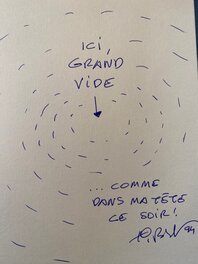 ICI,
GRAND
VIDE
... COMME
DANS MA TETE
CE SOIR!